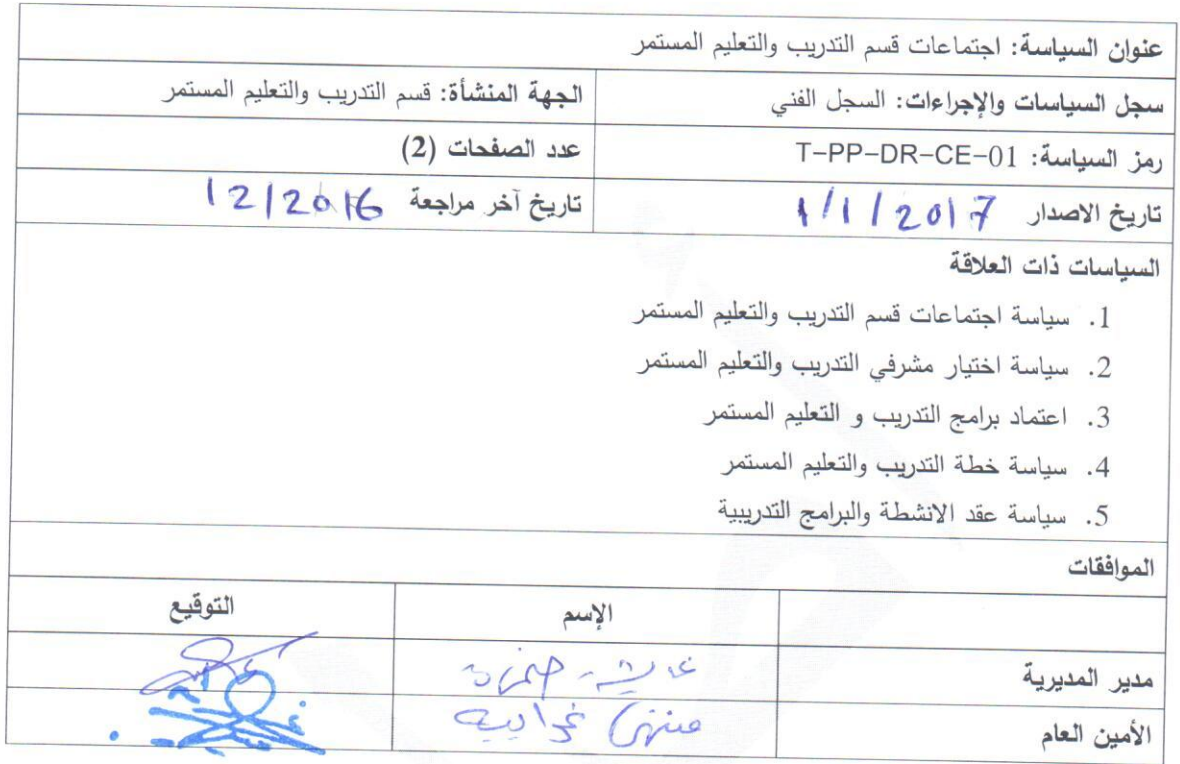 عنوان السياسة: اجتماعات قسم التدريب والتعليم المستمر
سجل السياسات والإجراءات: السجل الفني
الجهة المنشأة: قسم التدريب والتعليم المستمر
رمز السياسة: T-PP-DR-CE-01
عدد الصفحات (2)
تاريخ الاصدار 1/1/2017
تاريخ آخر مراجعة 12/2016
السياسات ذات العلاقة
1. سياسة اجتماعات قسم التدريب والتعليم المستمر
2. سياسة اختيار مشرفي التدريب والتعليم المستمر
3. اعتماد برامج التدريب و التعليم المستمر
4. سياسة خطة التدريب والتعليم المستمر
5. سياسة عقد الانشطة والبرامج التدريبية
الموافقات
الإسم
التوقيع
مدير المديرية
الأمين العام